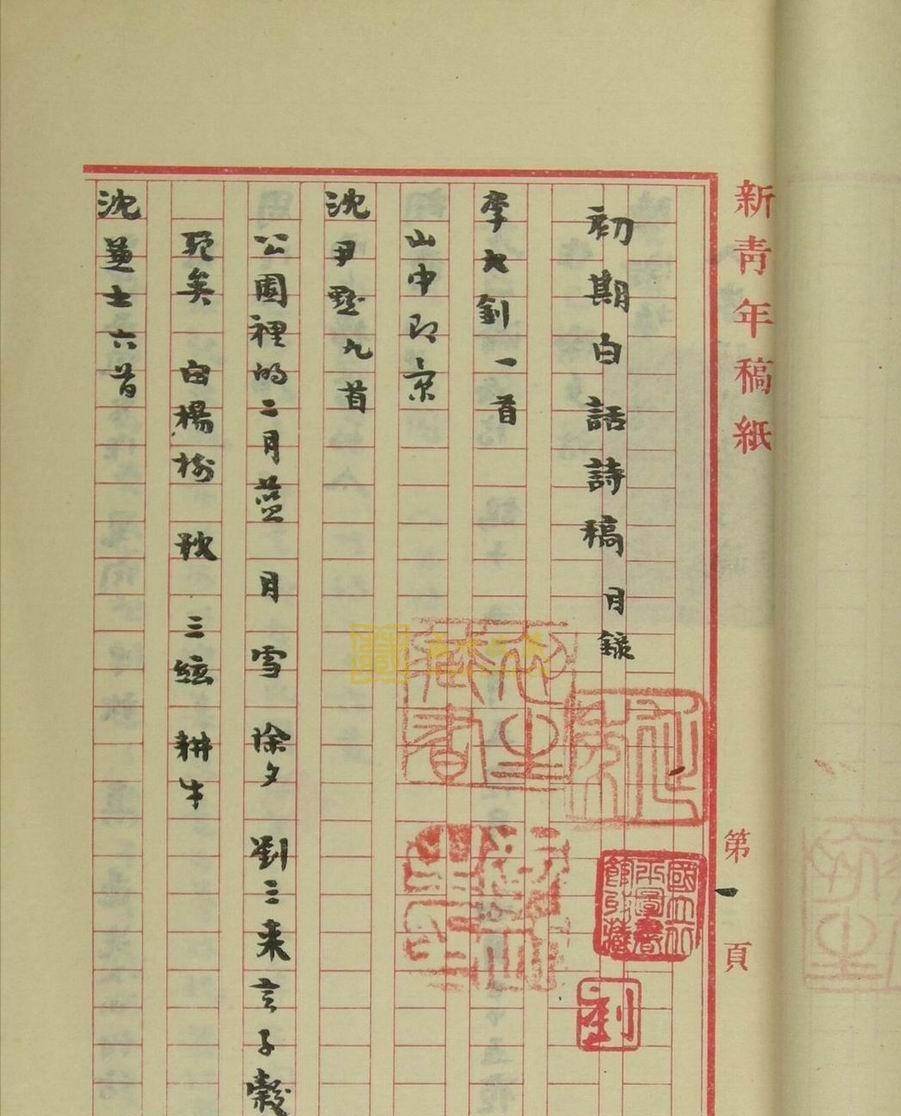 新青年稿紙
第一頁
初期白話詩稿目錄
李大釗一首
山中即景
沈尹默九首
公園裡的二月藍 月 雪 除夕 劉三来言子穀
死矣 白楊樹 秋 三絃 耕牛
沈兼士六首
劉